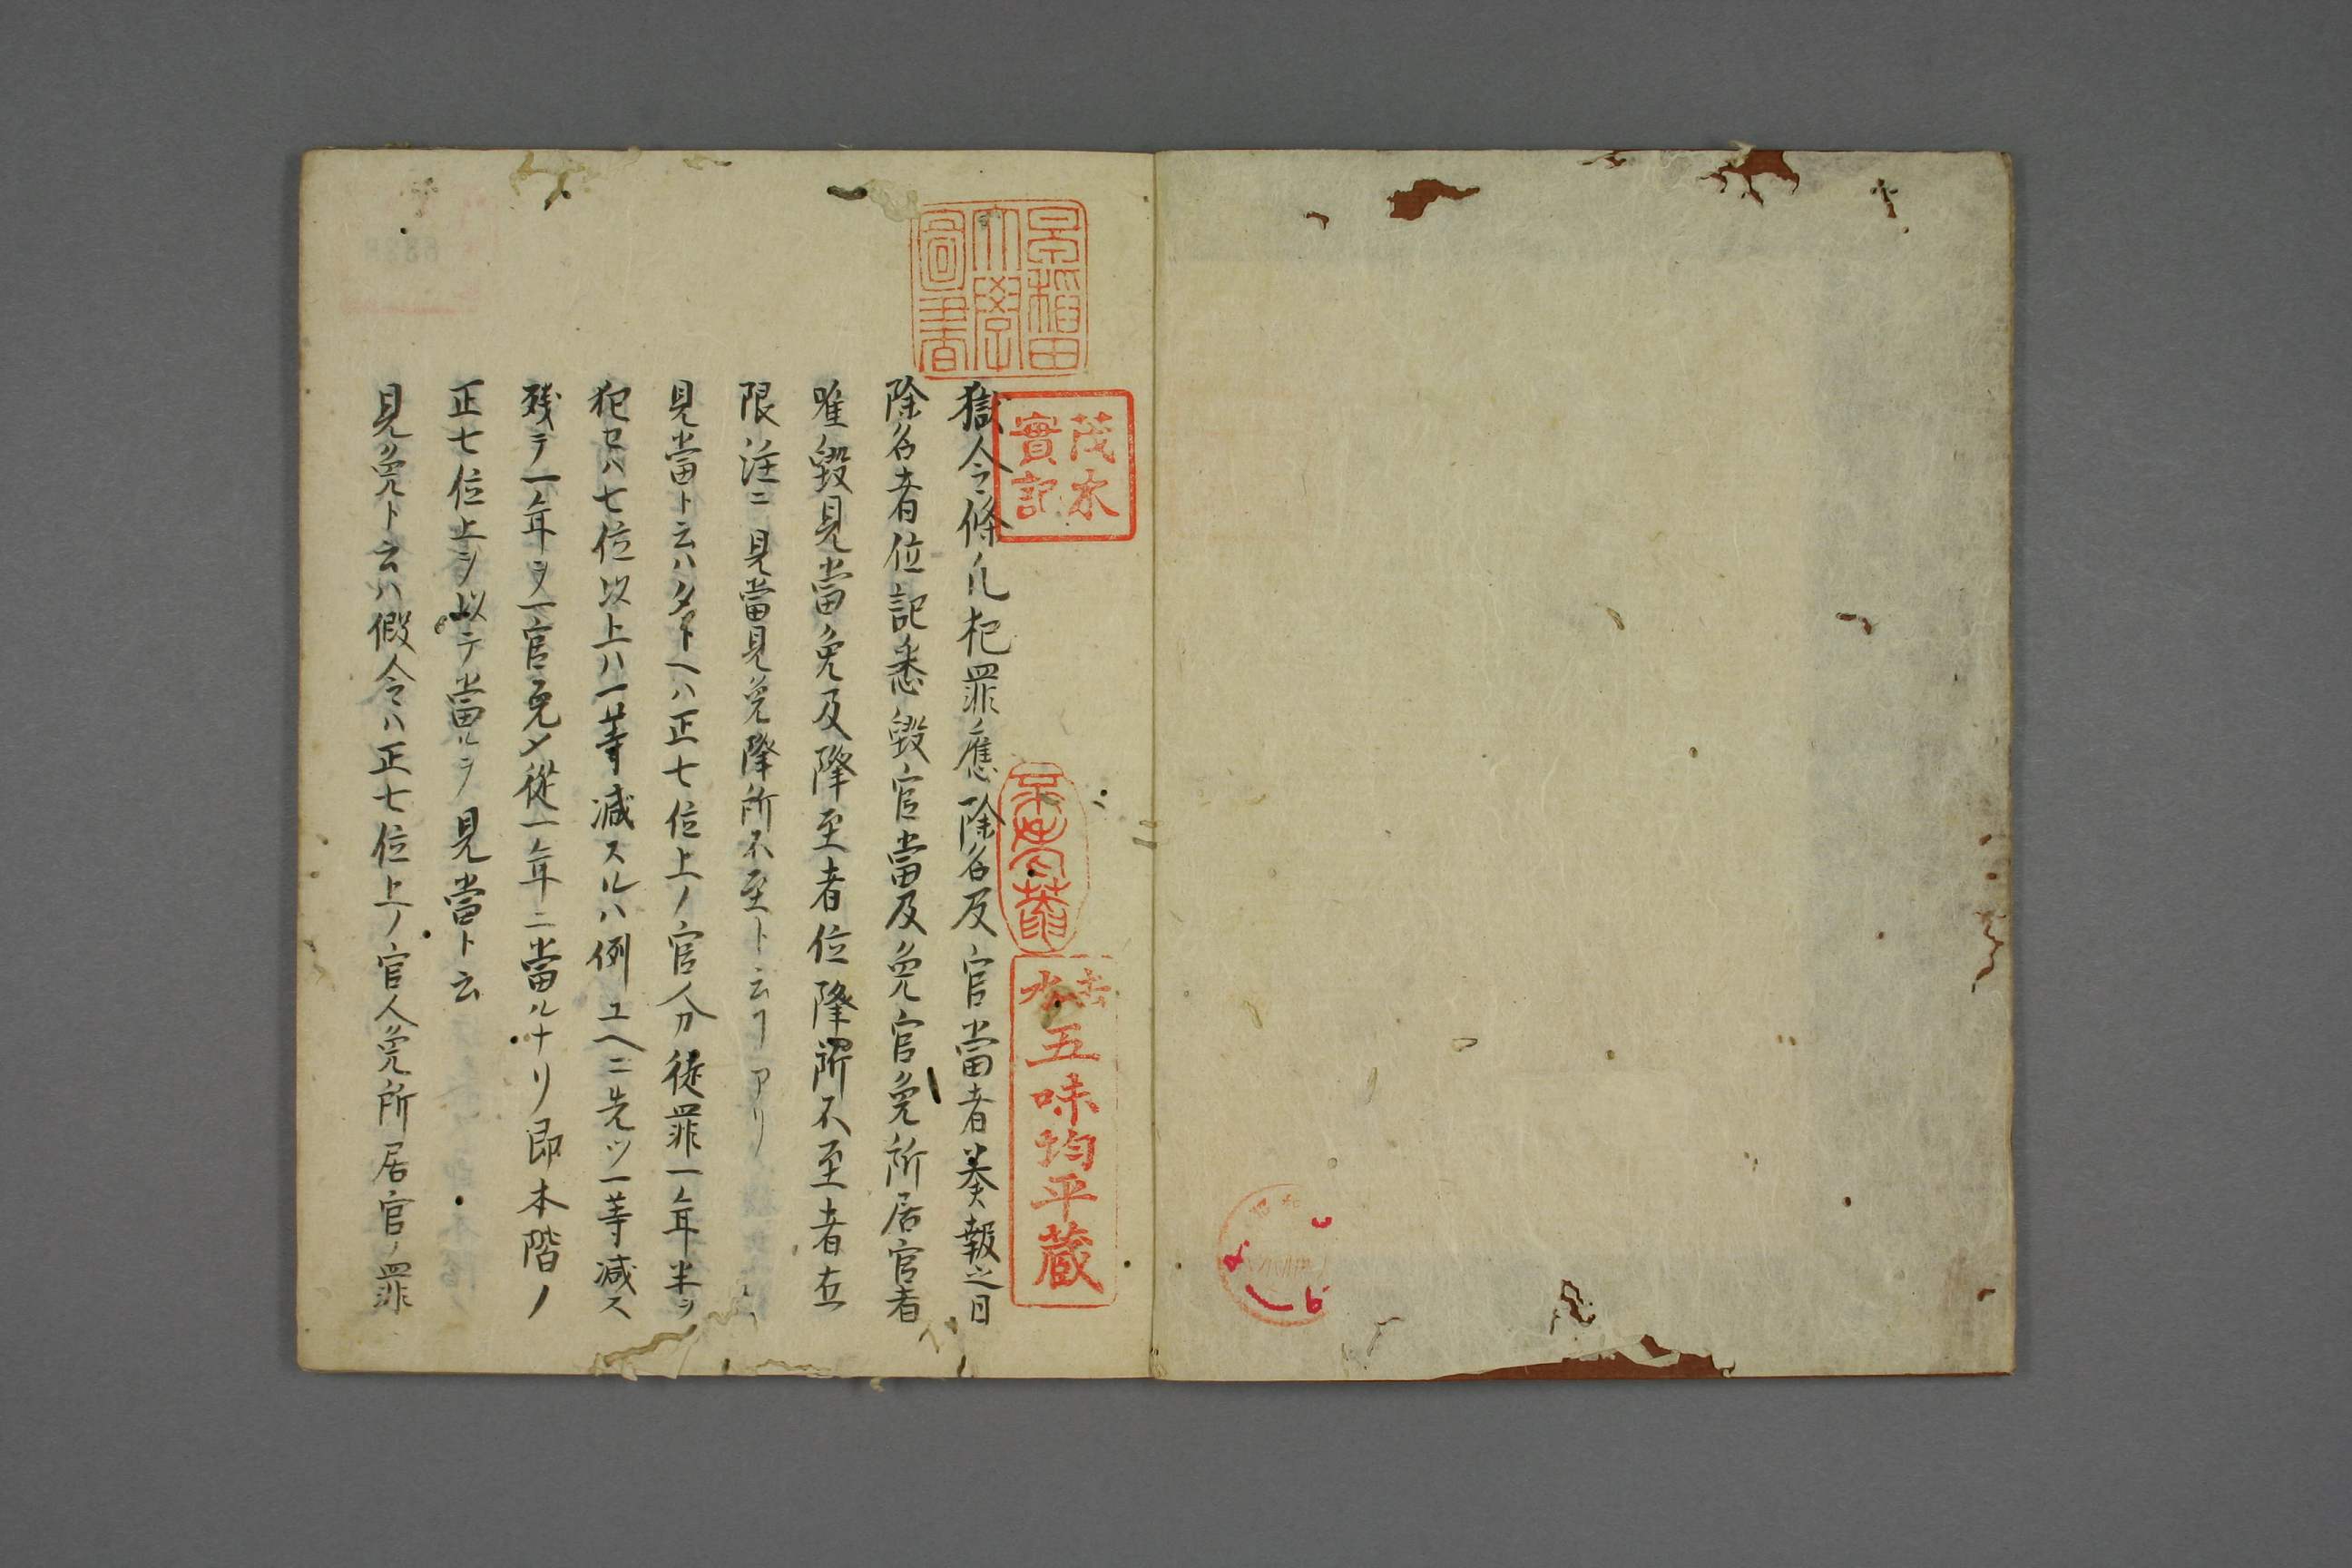 早稲田
大學
圖書
茂木
實記
五味均平蔵
獄令條凡犯罪應除名及官當者奏報之日
除名者位記悉毀官當及免官免所居官者
唯毀見當免及降至者位降所不至者在
限注ニ見當見免降所不至ト云フアリ
見當ト云ハタトヘハ正七位上ノ官人分徒罪一年半ヲ
犯セハ七位以上ハ一等減スルハ例ユヘニ先ツ一等減ス
残テ一年ヲ一官免メ從一年ニ當ルナリ即本階ノ
正七位上ヲ以テ當ルヲ見當ト云
見免ト云ハ假令ハ正七位上ノ官人免所居官ノ罪